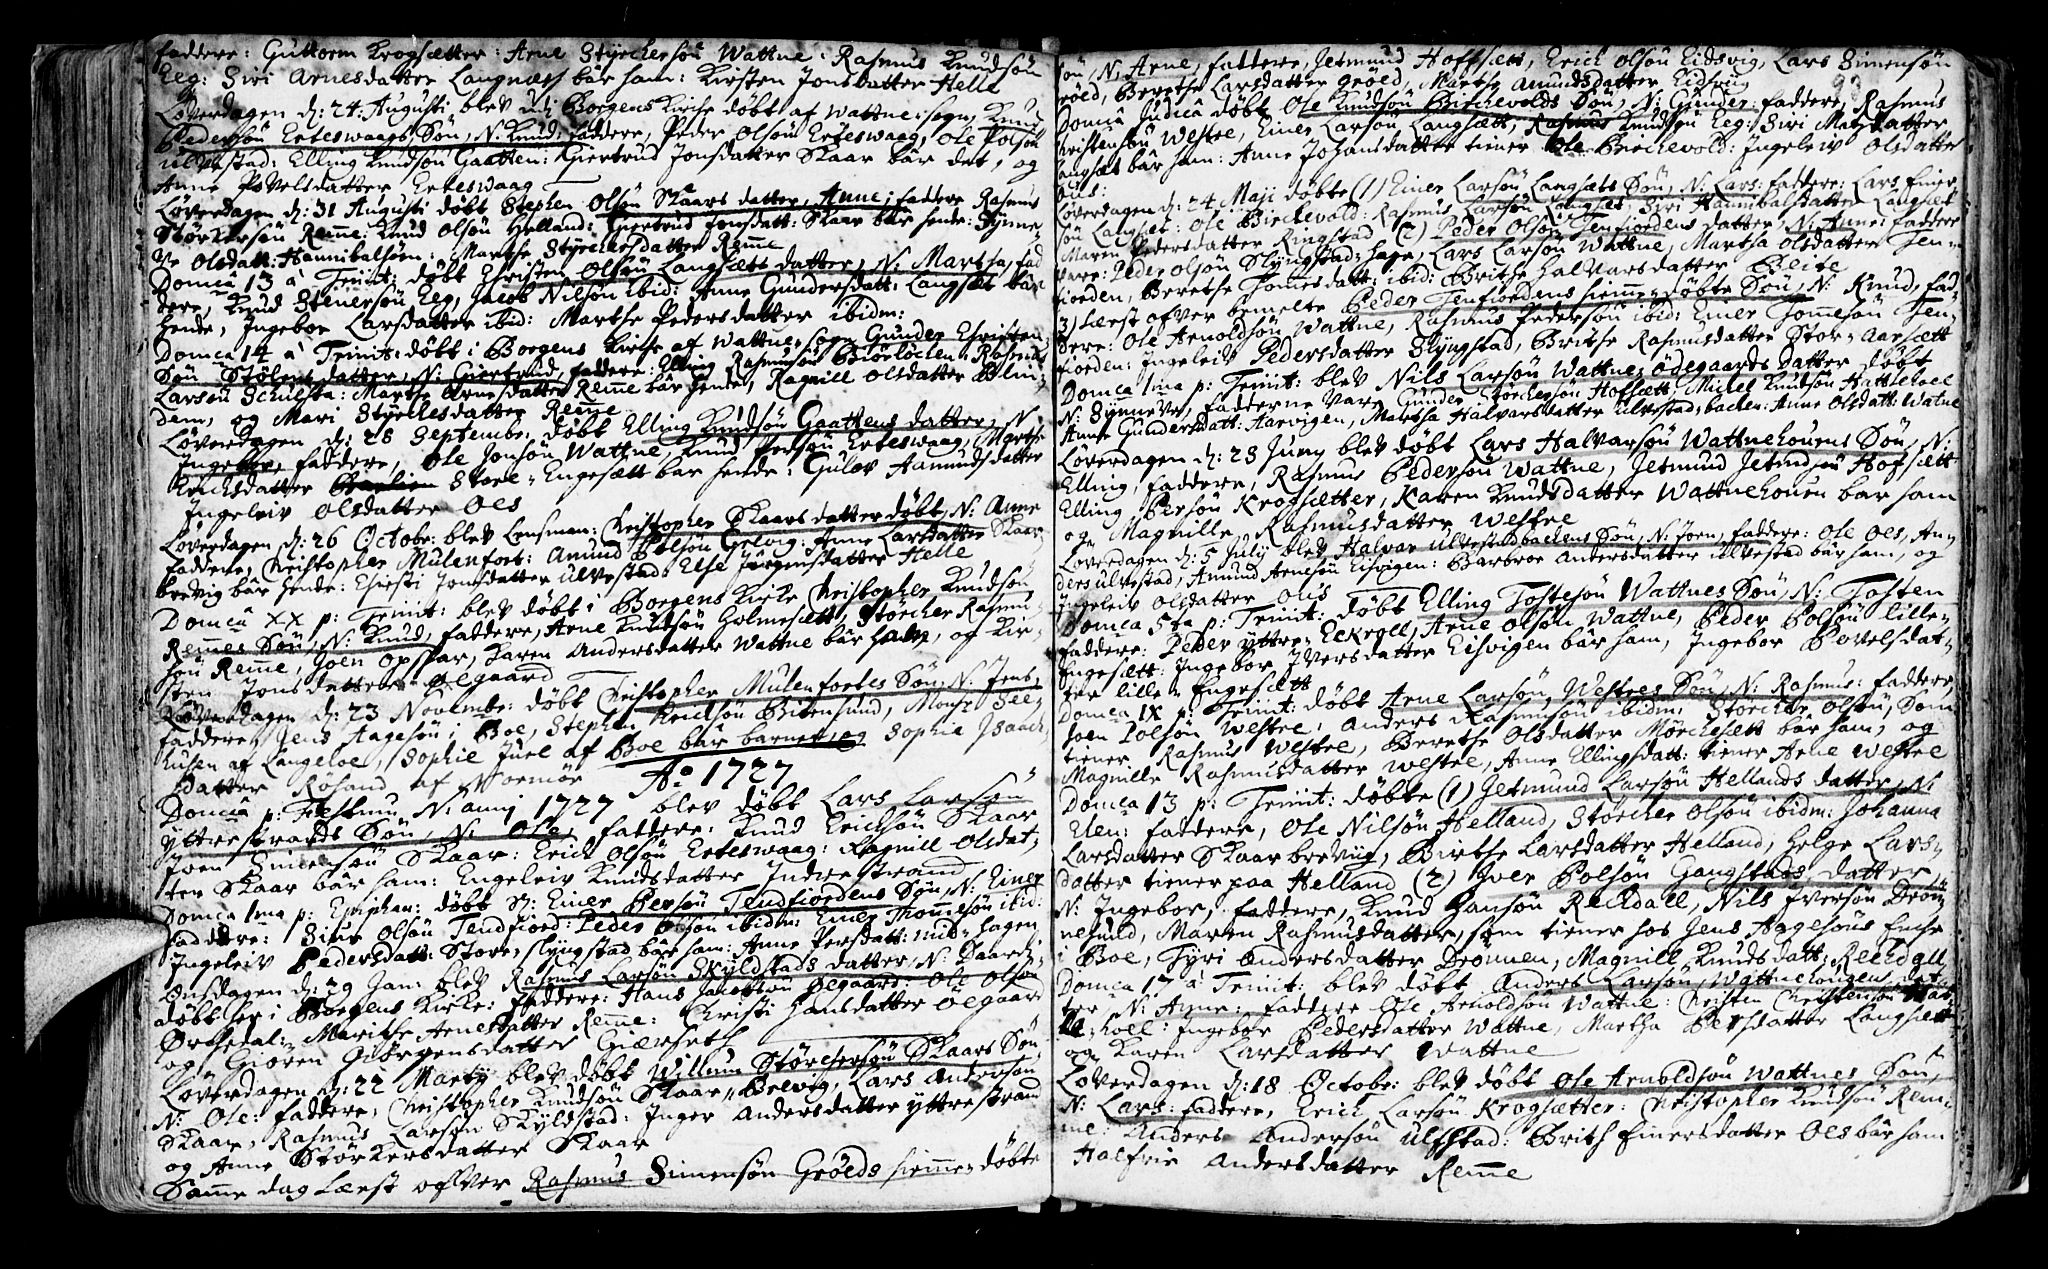 faddere: Guttorm Krogsætter: Arne Styrchersön Wattne: Rasmus Knudsön
Eeg: Siri Arnesdatter Langnæss bär ham: Kirsten Jonsdatter Helle
Löverdagen d: 24: Augusti blev udj Borgens Kirche döbt af Wattne: sogn, Knud
Pedersön Erteswaags Sön, N: Knud: faddere, Peder Olsön Erteswaag, Ole Polsön
Ulvestad: Elling Knudsön Gaatten: Giertrud Jonsdatter Skaar bär det, og
Anne Povelsdatter Erteswaag
Löverdagen d: 31 Augusti döbt Stephen Olsön Skaars datter, Anne; faddere Rasmus
Störkersön Reme: Knud Olsön Helland: Giertrud Jonsdatt: Skaar bär hende: Synne-
ve Olsdatt: Hannibalsöen: Marthe Styrchersdatter Reme
Domca 13 à Trinit: döbt Christen Olsön Langsætts datter, N: Martha, fad
dere, Knud Stenersön Eeg, Jacob Nilsön ibid: Anne Gundersdatt: Langsæt bär
hende, Ingebor Larsdatter ibid: Marthe Pedersdatter ibidm:
Domca 14 à Trinit: döbt i Borgens Kirche af Wattne sogn Gunder Christen
Sön Stölens datter, N: Giertrud, faddere: Elling Rasmusön Biörlöchen: Rasmus
Larsön Schulstad: Marthe Arnesdatter Reme bär hende, Ragnill Olsdatter Blin-
dem, og Mari Styrchesdatter Reme
Löverdagen d: 28 Septembr: döbt Elling Knudsön Gaattens datter, N:
Ingebor, faddere, Ole Jonsön Wattne, Knud Persön Erteswaag, Marthe
Erichsdatter Store-Engesætt bar hende: Gulov Aamundsdatter
Ingeleiv Olsdatter Oes
Löverdagen d: 26 Octobr: blev Lensman: Christopher Skaars datter döbt, N: Anne
faddere, Christopher Mulenfort: Amund Polsön Gelvig: Anne Larsdatter Skaar
brevig bär hende: Chresti Jonsdatter Ulvestad: Else Jürgensdatter Helle
Domca XX p: Trinit: blev döbt i Borgens Kirke Christopher Knudsön
Remes Sön, N: Knud, faddere, Arne Knudsön Holmesætt, Störcher Rasmu-
sön Reme, Joen Opskar, Karen Andersdatter Wattne bär ham, og Kir-
sten Jonsdatter Ödegaard
Löverdagen d: 23 Novembr: döbt Christopher Mulenfortes Sön, N: Jens,
faddere, Jens Aagesön i Boe, Stephen Knudsön Bitensund, Monsr See-
husen af Langeloe, Sophie Juel af Boe bär barnet, og Sophie Isaach
datter Rösand af Normör
Ao 1727
Domca p: Festum N: anni 1727 blev döbt Lars Larsön
Yttrestrands Sön, N: Ole, faddere: Knud Erichsön Skaar
Joen Simensön Skaar: Erich Olsön Erteswaag: Ragnill Olsdat-
ter Skaar bär ham: Engeleiv Knudsdatter Indrestrand
Domca 1ma p: Epiphan: döbt N: Einer Persön Tendfiordens Sön, N: Einer
faddere: Siur Olsön Tendfiord: Peder Olsön ibidm: Einer Thommesön ibid:
Ingeleiv Pedersdatt: Store-Slyngstad bär ham: Anne Persdatt: mid-hagen
Onsdagen d: 29 Jan: blev Rasmus Larsön Skyldstads datter, N: Baard-
döbt her i Borgens Kirke: faddere: Hans Jacobsön Öegaard: Ole Olsön
Örthedal: Marithe Arnesdatter Reme: Christi Hansdatter Öegaard
og Gioren Giörgensdatter Giærseth
Löverdagen d: 22 Martij blev döbt Willum Störchersön Skaars Sön
N: Ole: faddere, Christopher Knudsön Skaar-Brevig, Lars Andersön
Skaar, Rasmus Larsön Skyldstad: Inger Andersdatter Yttrestrand
og Anne Störkersdatter Skaar
Same dag Læst ofver Rasmus Simensön Gröeds hieme-döbte
sön, N: Arne, faddere, Jetmund Hoffsætt, Erich Olsön Eidsvig, Lars Simensön
Gröed, Berethe Larsdatter Gröed, Marthe Amundsdatter Eidsvig
Domca Judica döbt Ole Knudsön Birchevolds Sön, N: Gunder: faddere, Rasmus
Christensön Westre, Einer Larsön Langsætt, Rasmus Knudsön Eeg: Siri Matzdatter
Langsæt bär ham: Anne Johansdatter tiener Ole Birchevold: Ingeleiv Olsdatter
Ous:
Löverdagen d: 24 Maji döbte (1) Einer Larsön Langsæts Sön, N: Lars: faddere: Lars Einer
sön Langsæt: Ole Birchevold: Rasmus Larsön Langsæt: Siri Hannibalsdatter Langsæt
Maren Pedersdatter Ringstad (2) Peder Olsön Tenfiordens datter, N: Anne: faddere
vare: Peder Olsön Slyngstad-hage, Lars Larsön Wattne, Martha Olsdatter Ten-
fiorden, Berethe Tomesdatt: ibid: Brithe Halvarsdatter Blite
3) Læst ofver bemelte Peder Tenfiordens hieme-döbte Sön, N: Knud, fad-
dere: Ole Arnoldsön Wattne, Rasmus Pedersön ibid: Einer Tomesön Ten-
fiorden: Ingeleiv Pedersdatter Slyngstad, Brithe Rasmusdatter Stor-Aarsætt
Domca 1ma p: Trinit: blev Nils Larsön Wattne-Ödegaards datter döbt
N: Synneve, fadderne vare Gunder Störchersön Hofsætt Michel Knudsön Hattlehoel
Anne Gundersdatt: Aarvigen, Martha Halvarsdatter Ulvestad-bachen: Anne Olsdatt: Watne
Löverdagen d: 28 Juny blev döbt Lars Halvarsön Wattnehouens Sön, N:
Elling, faddere, Rasmus Pedersön Wattne, Jetmund Jetmdsön Hofsætt
Elling Persön Krogsætter, Karen Knudsdatter Wattnehouen bar ham
og Magnille Rasmusdatter Westre
Löverdagen d: 5 July blev Halvar Ulvestadbachens Sön, N: Joen, faddere: Ole Oes, An-
ders Ulvestad, Amund Arnesön Eisvigen: Barbroe Andersdatter Ulvestad bär ham, og
Ingeleiv Olsdatter Ous
Domca 5ta p: Trinit: döbt Elling Tostesön Wattnes Sön, N: Tosten
faddere: Peder Yttre-Eckroll, Arne Olsön Wattne, Peder Polsön lille-
Engesætt: Ingebor Iversdatter Eisvigen bär ham, Ingebor Povelsdat-
ter lille-Engesætt
Domca IX p: Trinit: döbt Arne Larsön, Westres Sön, N: Rasmus: faddere,
Joen Polsön Westre, Anders Rasmusön ibidm: Störcher Olsön, som
tiener Rasmus Westre, Berethe Olsdatter Mörchesætt bär ham, og
Magnille Rasmusdatter Westre, Anne Ellingsdatt: tiener Arne Westre
Domca 13 p: Trinit: döbte (1) Jetmund Larsön Hellands datter, N:
Elen: faddere, Ole Nilsön Helland, Störcher Olsön ibidm: Johanna
Larsdatter Skaarbreviig, Birthe Larsdatter Helland, Helge Lars-
datter tiener paa Helland (2) Iver Polsön Gangstads datter,
N: Ingebor, faddere, Knud Hansön Rechdall, Nils Iversön Drön-
nesund, Maren Rasmusdatter, som tiener hos Jens Aagesöns Enche
i Boe, Tyri Andersdatter Drönnen, Magnill Knudsdatt: Rechdall
Domca 17 à Trinit: blev döbt Anders Larsön, Wattnehougens dat-
ter N: Anne: faddere Ole Arnoldsön Wattne: Christen Christensön Hat-
le-hoel: Ingebor Pedersdatter Wattne, Martha Persdatter Langsætt
og Karen Larsdatter Wattne
Löverdagen d: 18 Octobr: blev döbt Ole Arnoldsön Wattnes Sön,
N: Lars: faddere, Erich Larsön Krogsætter: Christopher Knudsön Rem-
me: Anders Andersön Ulfstad: Brith Einersdatter Oes bär ham
Halfrie Andersdatter Reme